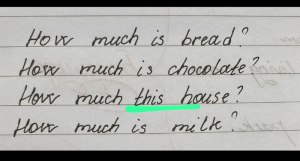 How much is bread?
How much is chocolate?
How much this house?
How much is milk?